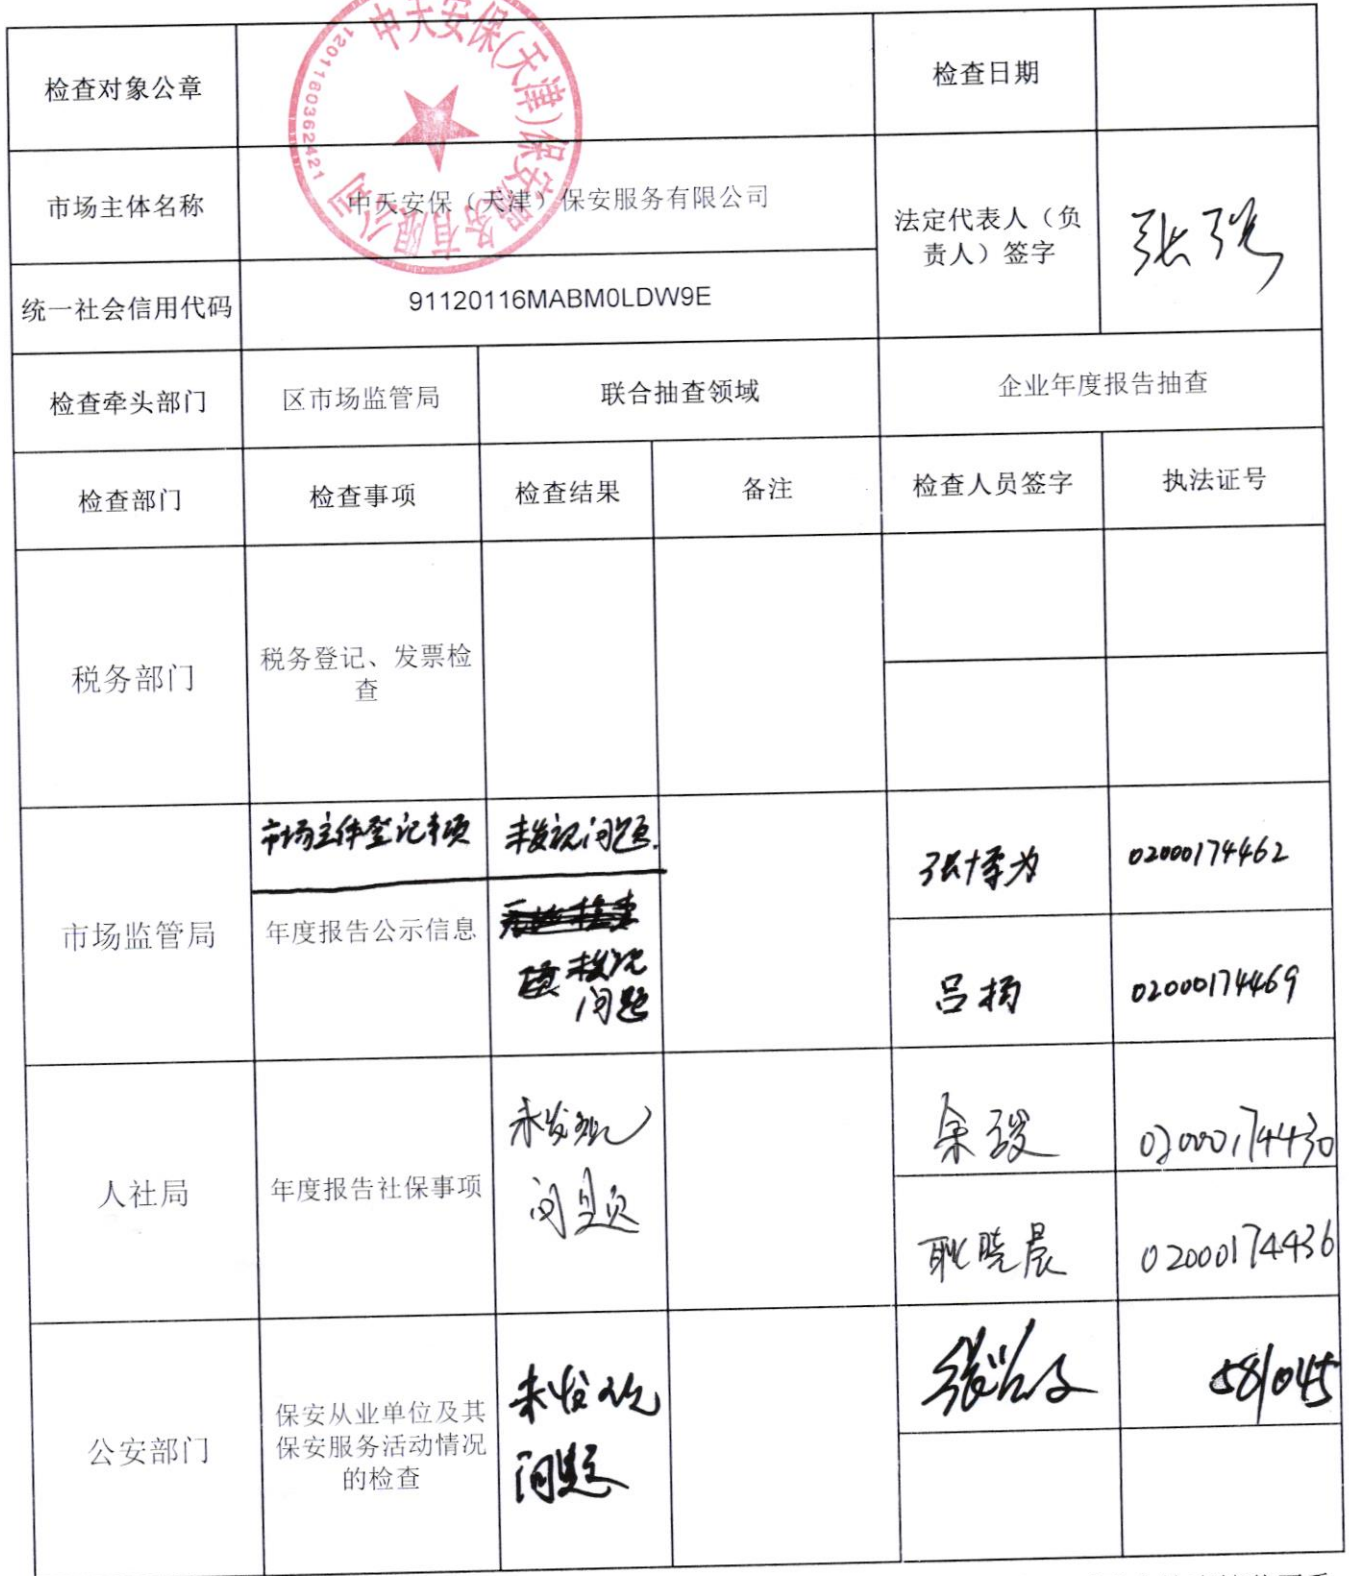 中天安保（天津）保安服务有限公司
1201160362421
检查对象公章
检查日期
市场主体名称
中天安保（天津）保安服务有限公司
法定代表人（负
责人）签字
张强
统一社会信用代码
91120116MABM0LDW9E
检查牵头部门
区市场监管局
联合抽查领域
企业年度报告抽查
检查部门
检查事项
检查结果
备注
检查人员签字
执法证号
税务部门
税务登记、发票检
查
市场监管局
市场主体登记事项
未发现问题.
年度报告公示信息
未发现
问题
02000174462
吕杨
02000174469
人社局
年度报告社保事项
未发现
问题
02000174430
耿晓晨
02000174436
公安部门
保安从业单位及其
保安服务活动情况
的检查
未发现
问题
581045